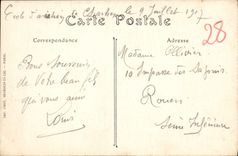 le 9 Juillet 1917
Carte Postale
Correspondance
Adresse
28
Pour Souvenir
de Votre beau fils
qui vous aime
Louis
Madame Ollivier
10 Impasse des
Rouen
Seine Inférieure